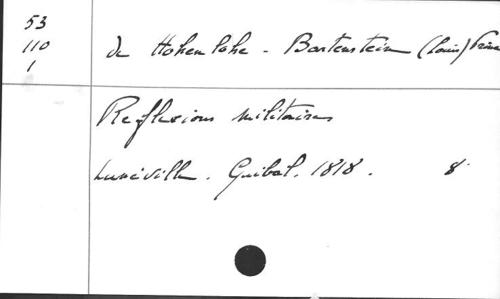 53
110
1
de Hohenlohe - Bartenstein (Louis) Prince
Reflexions militaires
Luneville. Guibal. 1818. 8°